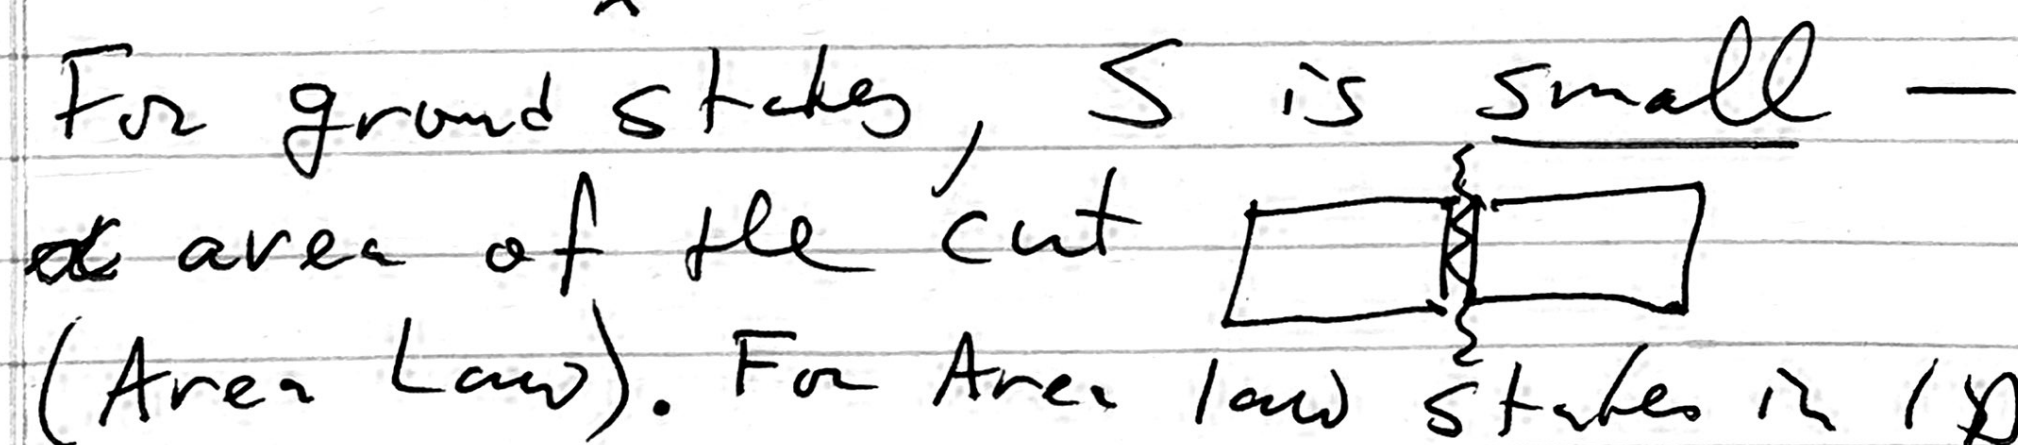 For ground states, S is small —
∝ area of the cut
(Area Law). For Area law states in 1D